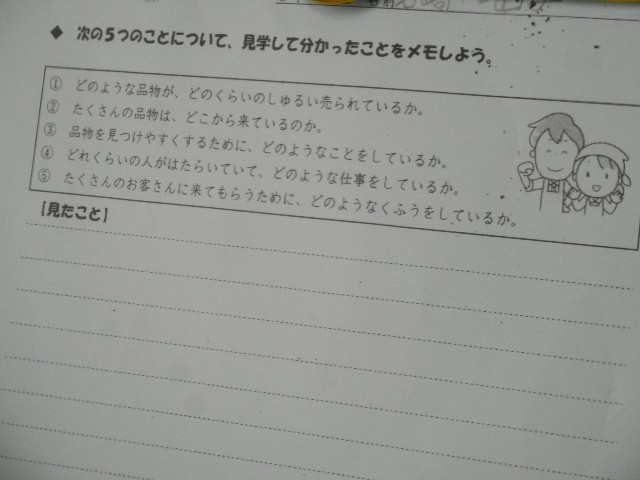 ◆ 次の5つのことについて、見学して分かったことをメモしよう。
① どのような品物が、どのくらいのしゅるい売られているか。
② たくさんの品物は、どこから来ているのか。
③ 品物を見つけやすくするために、どのようなことをしているか。
④ どれくらいの人がはたらいていて、どのような仕事をしているか。
⑤ たくさんのお客さんに来てもらうために、どのようなくふうをしているか。
【見たこと】